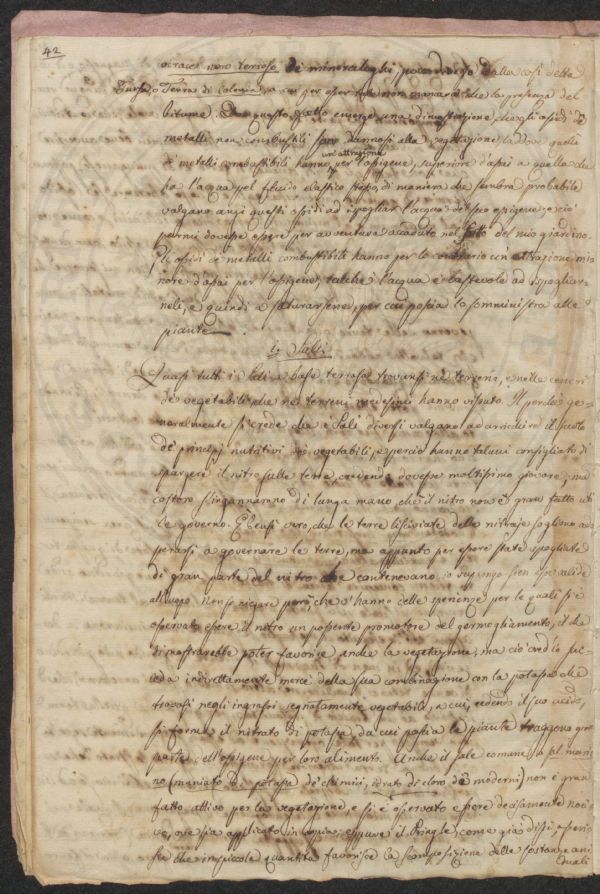 42
nero terroso de' mineraloghi, poco diverso dalla così detta
Terra di Colonia, a cui per esser tale non manca che la presenza del
bitume. Da questo fatto emerge una dimostrazione che gli ossidi de'
metalli non combustibili son dannosi alla vegetazione, laddove quelli
de' metalli combustibili hanno un'attrazione per l'ossigene, superiore d'assai a quella che
ha l'acqua pel fluido elastico stesso, di maniera che sembra probabile
valgano anzi questi ossidi ad ispogliar l'acqua del suo ossigene; e ciò
parmi dovesse essere per avventura accaduto nel fatto del mio giardino.
Gli ossidi de' metalli combustibili hanno per lo contrario un'attrazione mi-
nore d'assai per l'ossigene, talché l'acqua è bastevole ad ispogliar-
neli, e quindi a saturarsene, per cui possia lo somministra alle
piante.
Sali.
Quasi tutti i Sali a base terrosa trovansi ne' terreni, e nelle ceneri
de' vegetabili che ne' terreni medesimi hanno vissuto. Il perché ge-
neralmente si crede che i Sali diversi valgano ad arricchire il suolo
de' principj nutritivi de' vegetabili, e perciò hanno taluni consigliato di
spargere il nitro sulle terre, credendo dovesse moltissimo giovare; ma
costoro s'ingannarono di lunga mano, ché il nitro non è gran fatto uti-
le governo. È bensì vero, che le terre lisciviate delle nitraje sogliono ado-
perarsi a governare le terre, ma appunto per essere state spogliate
di gran parte del nitro che contenevano, io suppongo sien esse valide
all'uopo. Non si niegare però, che v'hanno delle sperienze per le quali si è
osservato essere il nitro un possente promotore del germogliamento, il che
dimostrarebbe poter favorire anche la vegetazione; ma ciò credo suc-
ceda indirettamente mercé della sua combinazione con la potassa che
trovasi negli ingrassi segnatamente vegetabili, a cui, cedendo il suo acido,
si forma il nitrato di potassa, da cui possia le piante traggono gran
parte dell'ossigene per loro alimento. Anche il sale comune, o sal mari-
no (muriato di potassa de' chimici, idrato di cloro de' moderni) non è gran
fatto attivo per la vegetazione, e si è osservato essere decisamente noci-
vo, ove sia applicato in copia; eppure il Pringle, come già dissi, asserisce
che in piccola quantità favorisce la scomposizione delle sostanze ani-